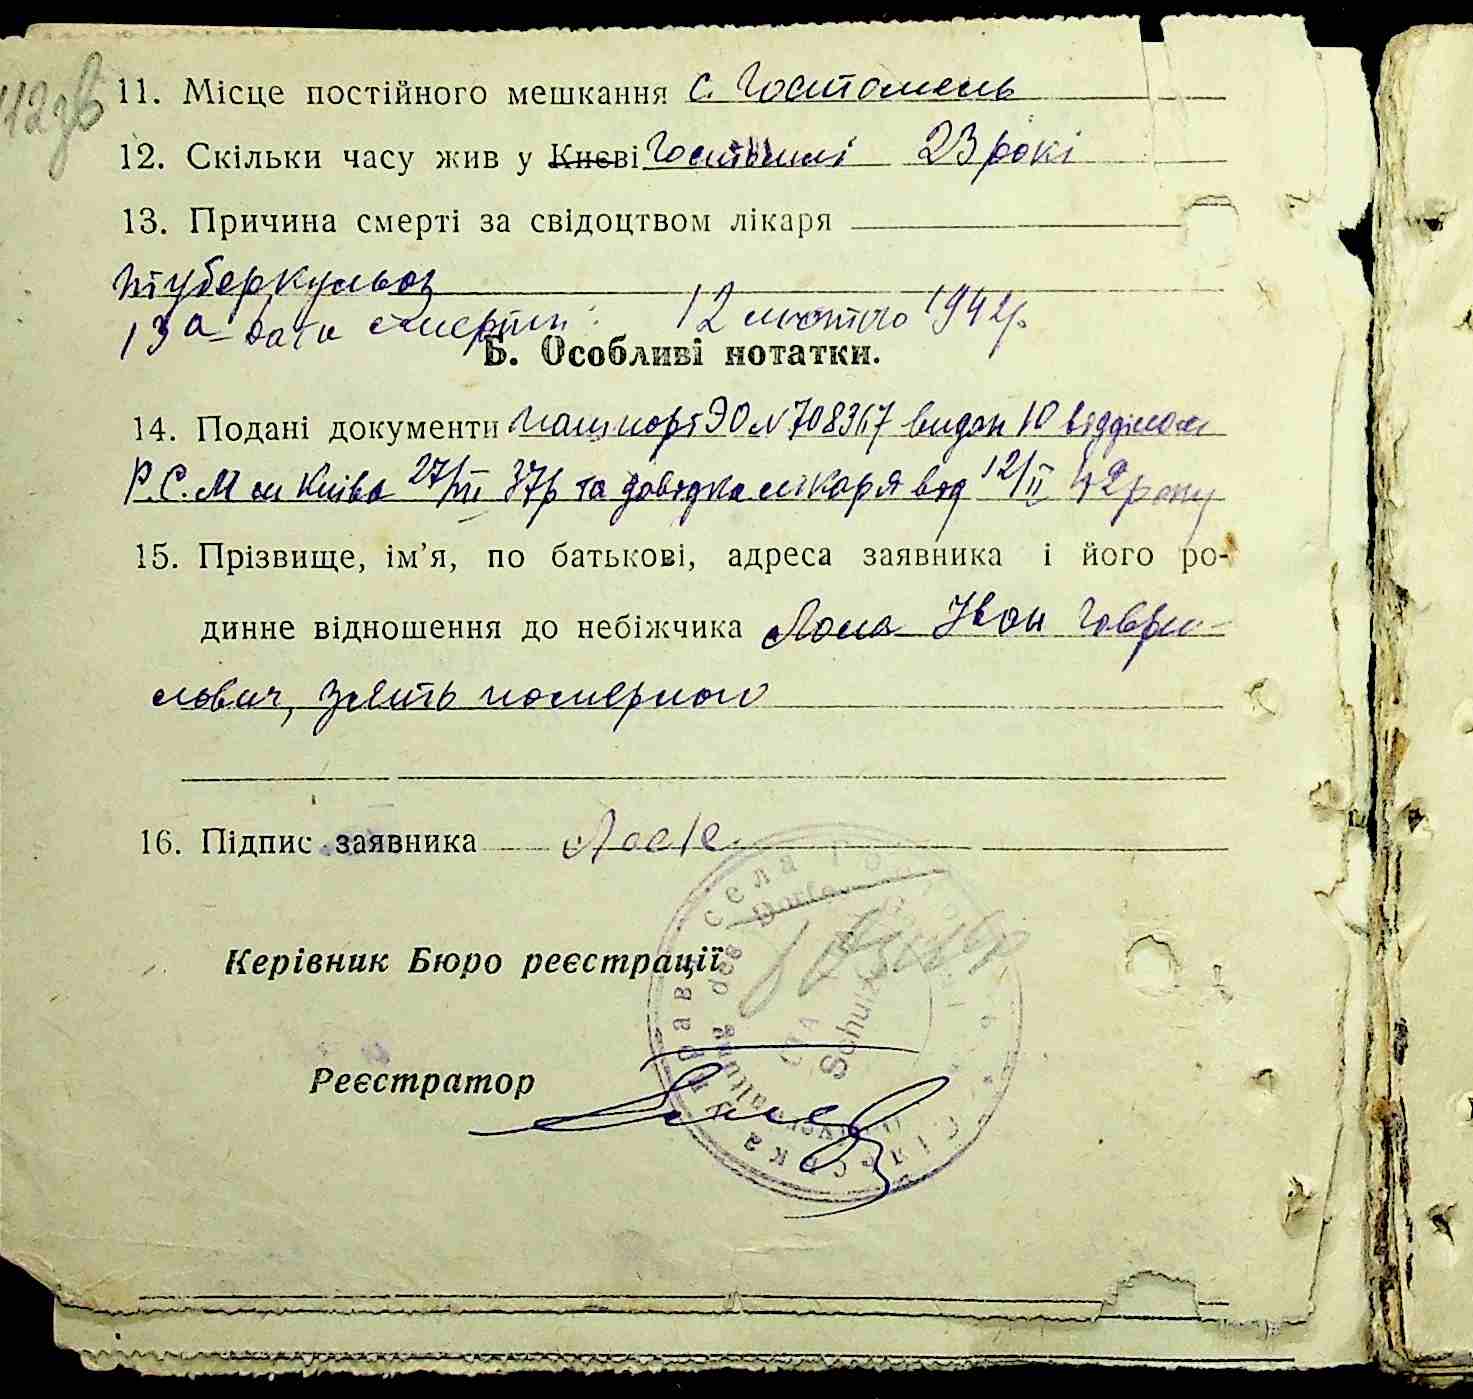 112зв
11. Місце постійного мешкання с. Гостомель
12. Скільки часу жив у Києві Гостомлі 23 рокі
13. Причина смерті за свідоцтвом лікаря
туберкульоз
13а дата смерти: 12 лютого 1942р.
Б. Особливі нотатки.
14. Подані документи пашпорт ЭО № 708367 видан 10 відділом
Р.С.М м Київа 27/VII 37р та довідка лікаря від 12/II 42 року
15. Прізвище, ім’я, по батькові, адреса заявника і його ро-
динне відношення до небіжчика Лола Іван Гаври-
лович, зять померлого
16. Підпис заявника
села Гостомель
des Dorfes
Керівник Бюро реєстрації
Реєстратор
Сільська управа